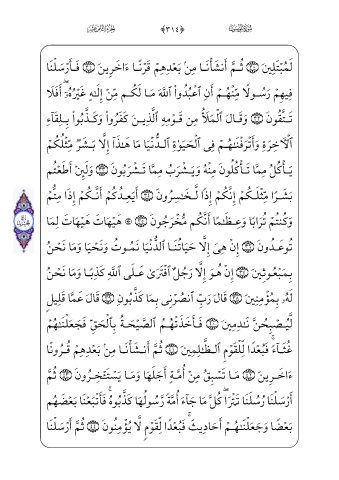 لَمُبْتَلِينَ ۝ ثُمَّ أَنشَأْنَا مِنۢ بَعْدِهِمْ قَرْنًا ءَاخَرِينَ ۝ فَأَرْسَلْنَا
فِيهِمْ رَسُولًا مِّنْهُمْ أَنِ ٱعْبُدُوا۟ ٱللَّهَ مَا لَكُم مِّنْ إِلَـٰهٍ غَيْرُهُۥٓ ۖ أَفَلَا
تَتَّقُونَ ۝ وَقَالَ ٱلْمَلَأُ مِن قَوْمِهِ ٱلَّذِينَ كَفَرُوا۟ وَكَذَّبُوا۟ بِلِقَآءِ
ٱلْـَٔاخِرَةِ وَأَتْرَفْنَـٰهُمْ فِى ٱلْحَيَوٰةِ ٱلدُّنْيَا مَا هَـٰذَآ إِلَّا بَشَرٌ مِّثْلُكُمْ
يَأْكُلُ مِمَّا تَأْكُلُونَ مِنْهُ وَيَشْرَبُ مِمَّا تَشْرَبُونَ ۝ وَلَئِنْ أَطَعْتُم
بَشَرًا مِّثْلَكُمْ إِنَّكُمْ إِذًا لَّخَـٰسِرُونَ ۝ أَيَعِدُكُمْ أَنَّكُمْ إِذَا مِتُّمْ
وَكُنتُمْ تُرَابًا وَعِظَـٰمًا أَنَّكُم مُّخْرَجُونَ ۝ ۞ هَيْهَاتَ هَيْهَاتَ لِمَا
تُوعَدُونَ ۝ إِنْ هِىَ إِلَّا حَيَاتُنَا ٱلدُّنْيَا نَمُوتُ وَنَحْيَا وَمَا نَحْنُ
بِمَبْعُوثِينَ ۝ إِنْ هُوَ إِلَّا رَجُلٌ ٱفْتَرَىٰ عَلَى ٱللَّهِ كَذِبًا وَمَا نَحْنُ
لَهُۥ بِمُؤْمِنِينَ ۝ قَالَ رَبِّ ٱنصُرْنِى بِمَا كَذَّبُونِ ۝ قَالَ عَمَّا قَلِيلٍ
لَّيُصْبِحُنَّ نَـٰدِمِينَ ۝ فَأَخَذَتْهُمُ ٱلصَّيْحَةُ بِٱلْحَقِّ فَجَعَلْنَـٰهُمْ
غُثَآءً ۚ فَبُعْدًا لِّلْقَوْمِ ٱلظَّـٰلِمِينَ ۝ ثُمَّ أَنشَأْنَا مِنۢ بَعْدِهِمْ قُرُونًا
ءَاخَرِينَ ۝ مَا تَسْبِقُ مِنْ أُمَّةٍ أَجَلَهَا وَمَا يَسْتَـْٔخِرُونَ ۝ ثُمَّ
أَرْسَلْنَا رُسُلَنَا تَتْرَا ۖ كُلَّ مَا جَآءَ أُمَّةً رَّسُولُهَا كَذَّبُوهُ ۚ فَأَتْبَعْنَا بَعْضَهُم
بَعْضًا وَجَعَلْنَـٰهُمْ أَحَادِيثَ ۚ فَبُعْدًا لِّقَوْمٍ لَّا يُؤْمِنُونَ ۝ ثُمَّ أَرْسَلْنَا